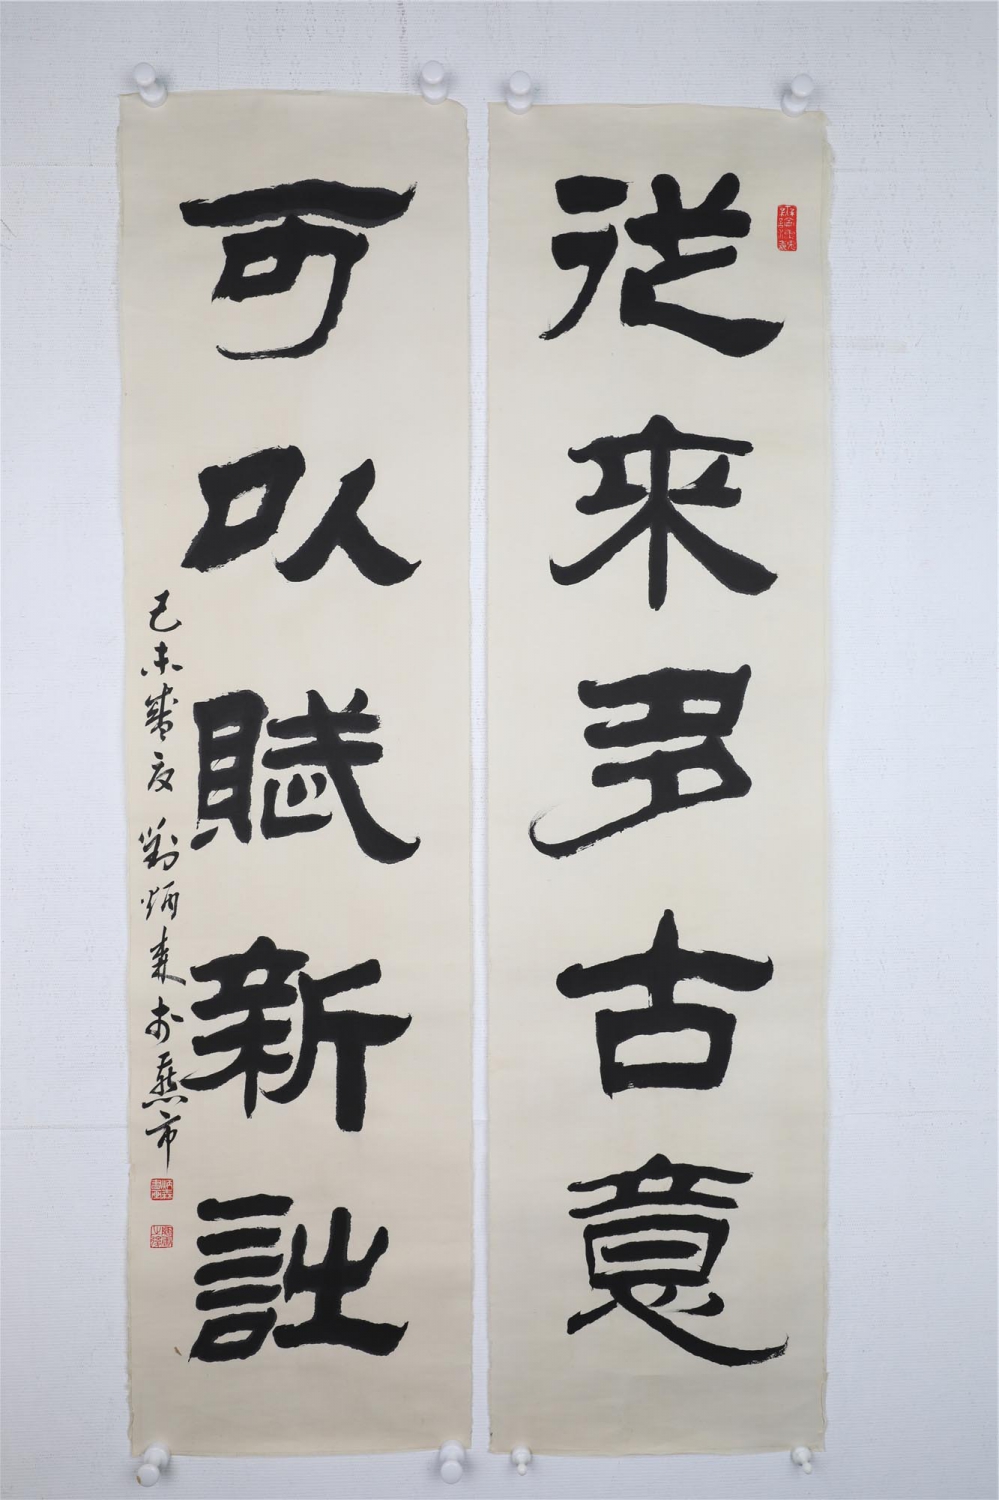 從來多古意
可以賦新詩
己未盛夏劉炳森於燕市